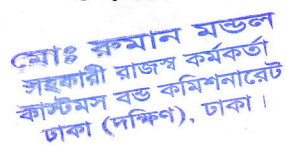 মোঃ রুমান মন্ডল
সহকারী রাজস্ব কর্মকর্তা
কাস্টমস বন্ড কমিশনারেট
ঢাকা (দক্ষিণ), ঢাকা।